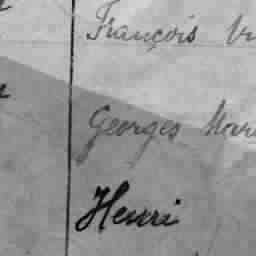 François
Georges
Henri